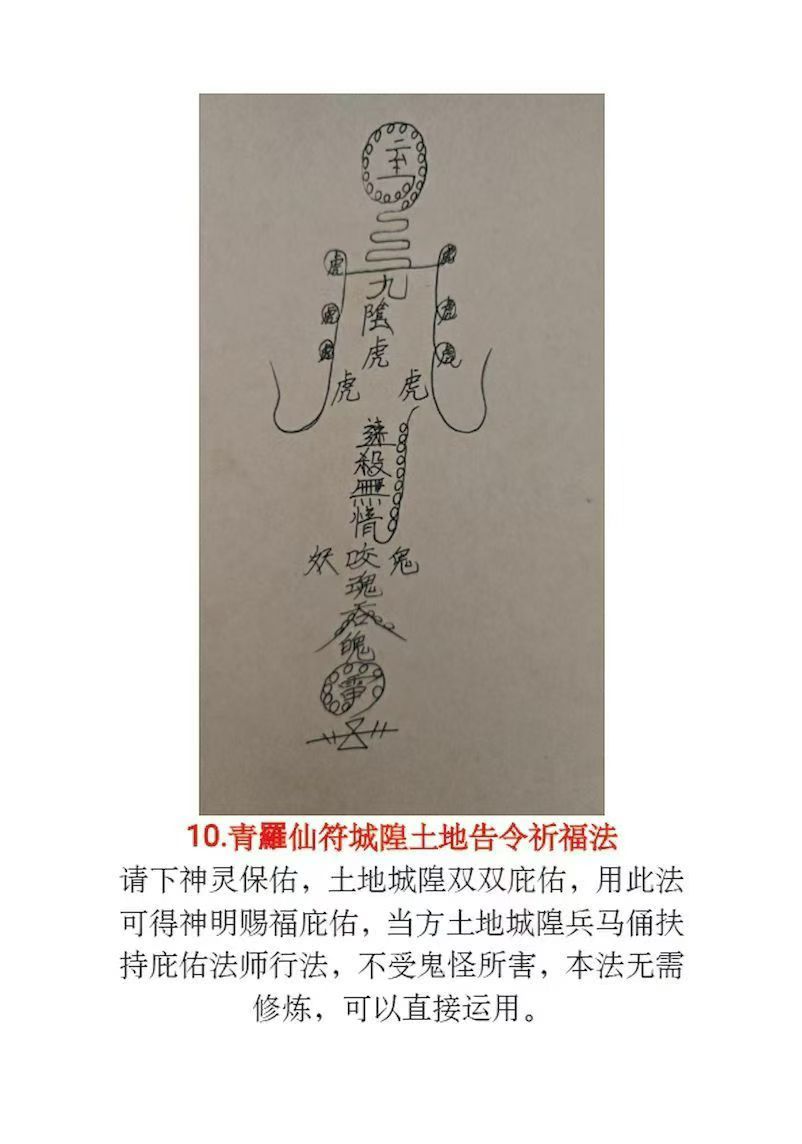 虎 虎
九
陰
虎 虎
虎
虎 虎
虎 虎
殺
無
情
妖 咬 鬼
魂
吞
魄
10.青羅仙符城隍土地告令祈福法
请下神灵保佑，土地城隍双双庇佑，用此法
可得神明赐福庇佑，当方土地城隍兵马俑扶
持庇佑法师行法，不受鬼怪所害，本法无需
修炼，可以直接运用。